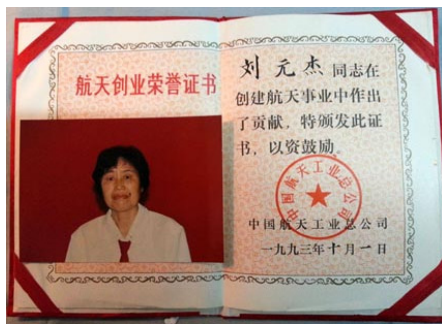 航天创业荣誉证书
刘元杰同志在
创建航天事业中作出
了贡献，特颁发此证
书，以资鼓励。
中国航天工业总公司
中国航天工业总公司
一九九三年十月一日